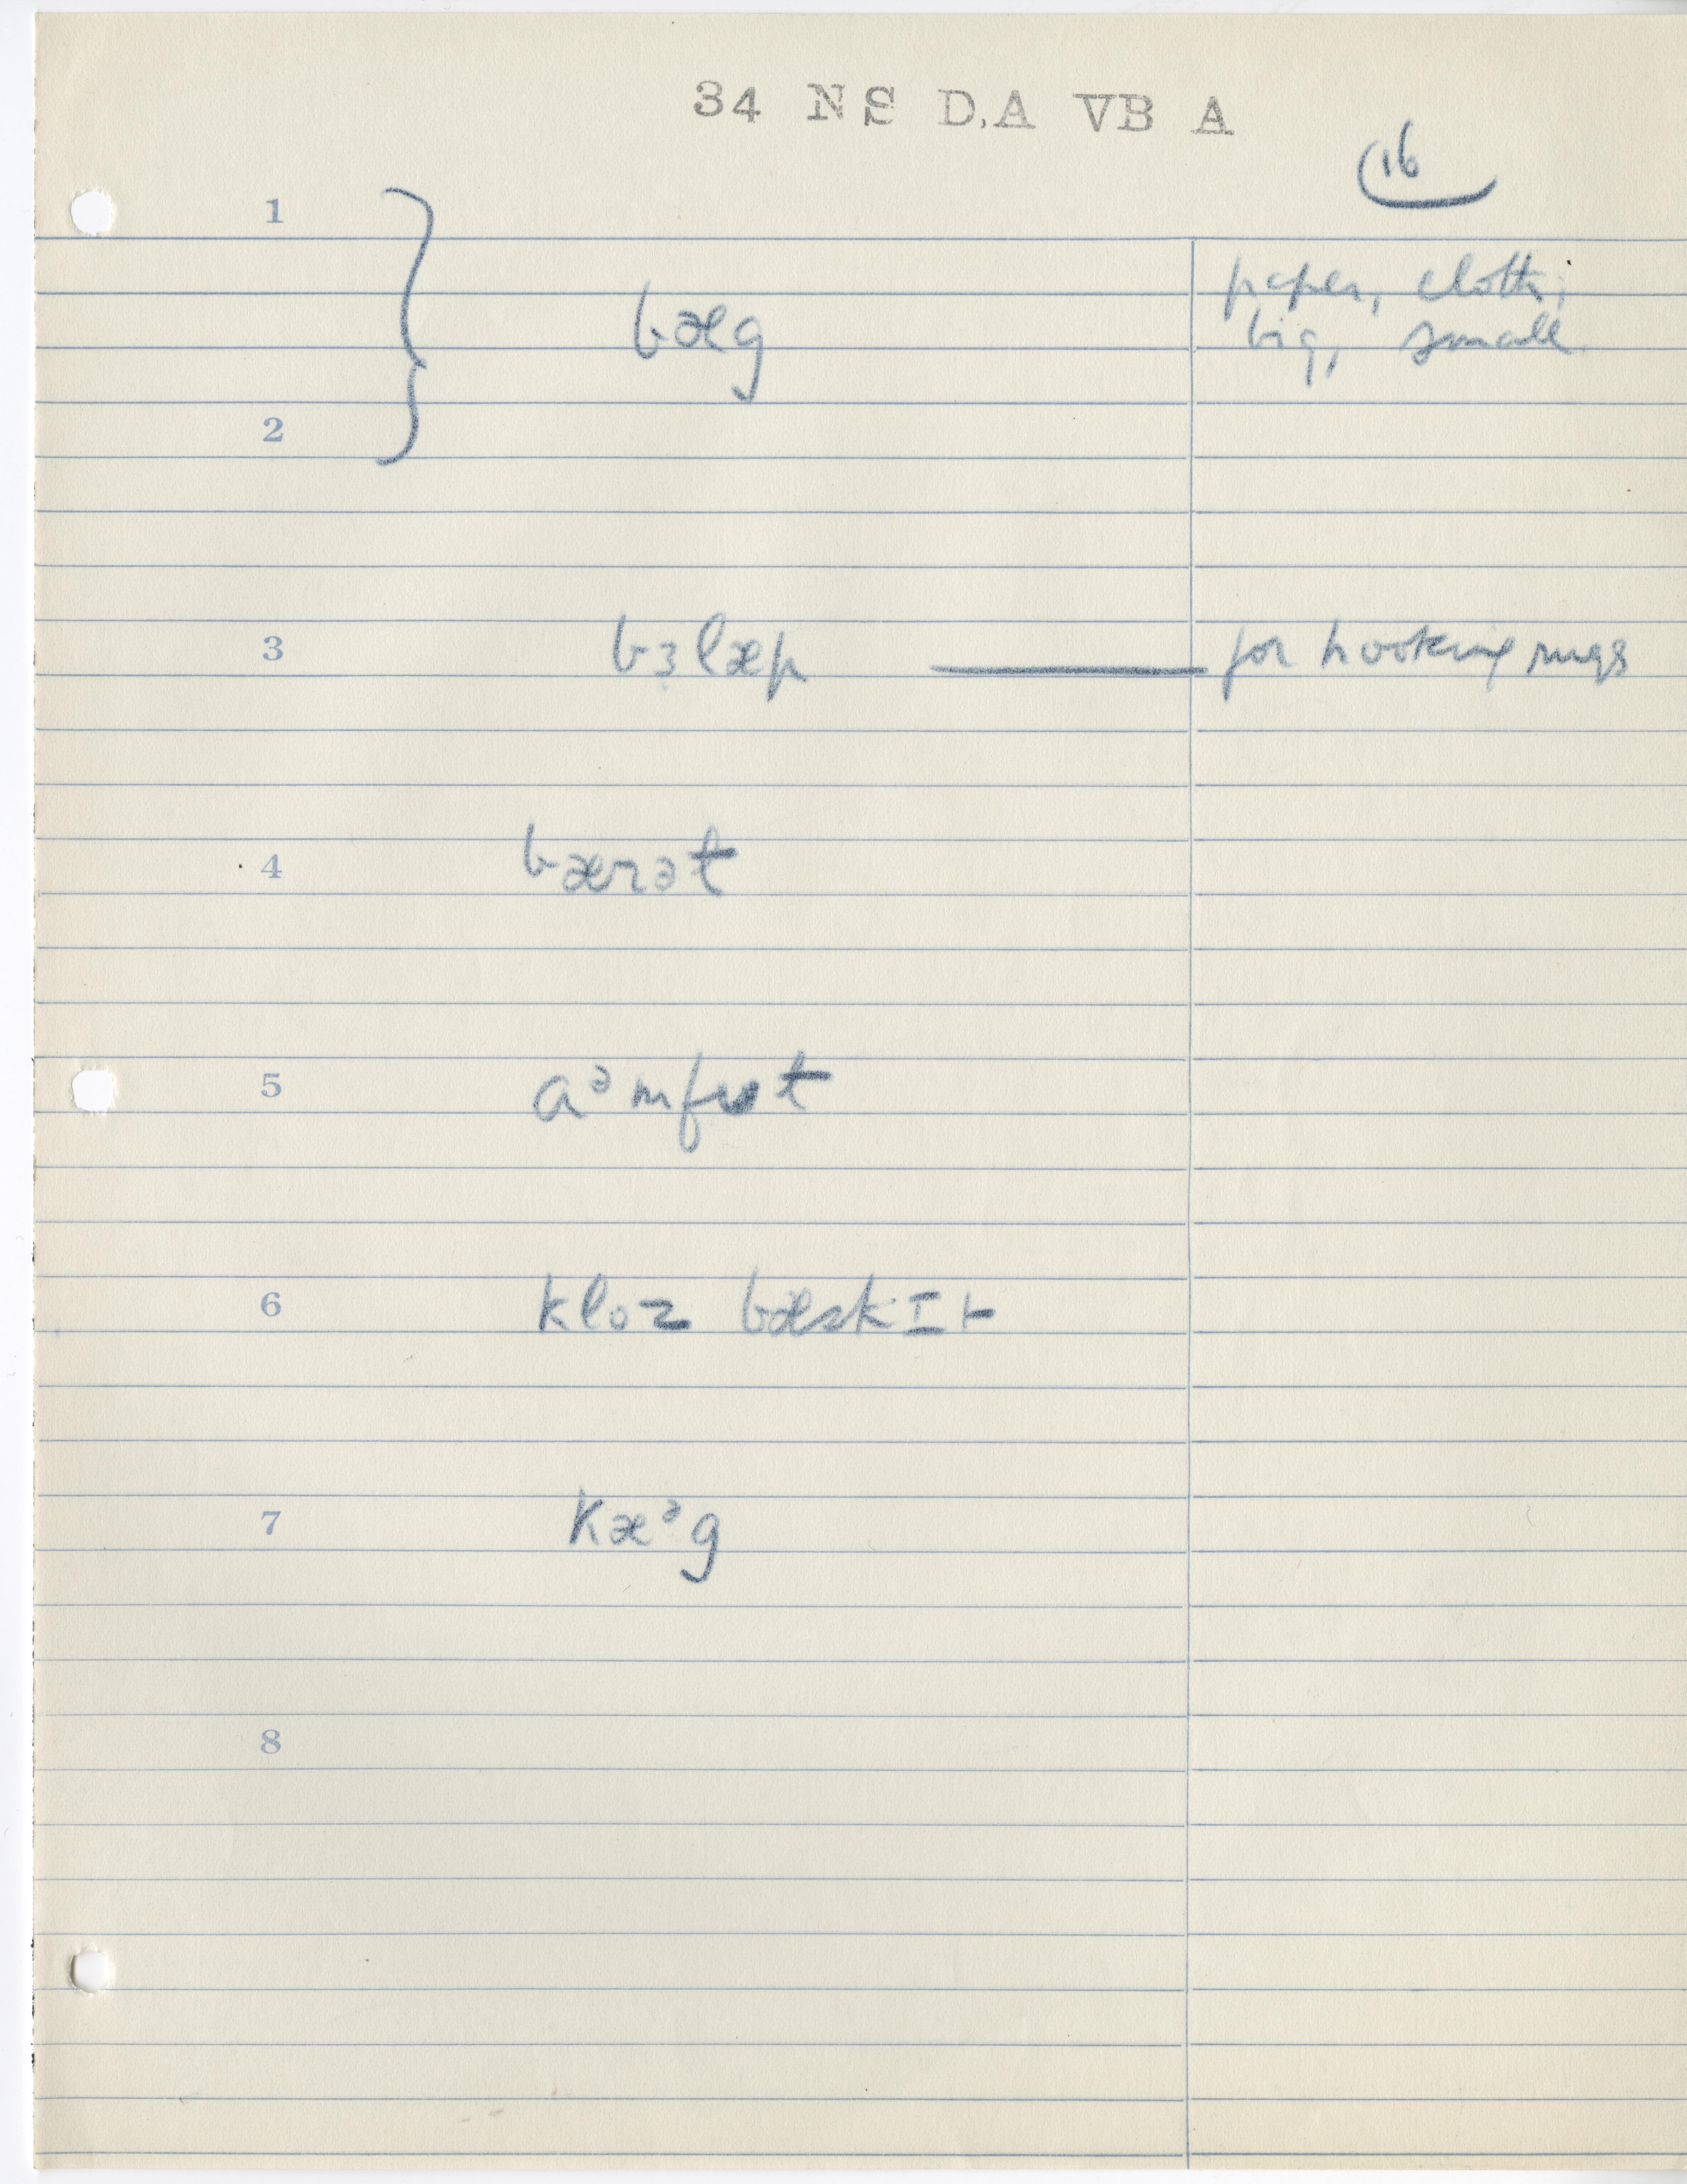 34 NS D.A VB A
16
1
bæg
paper, cloth;
big, small
2
3 bɜlæp — for hooking rugs
4 bærət
5 aᵊmfʊt
6 kloz bæskɪt
7 kæᵊg
8